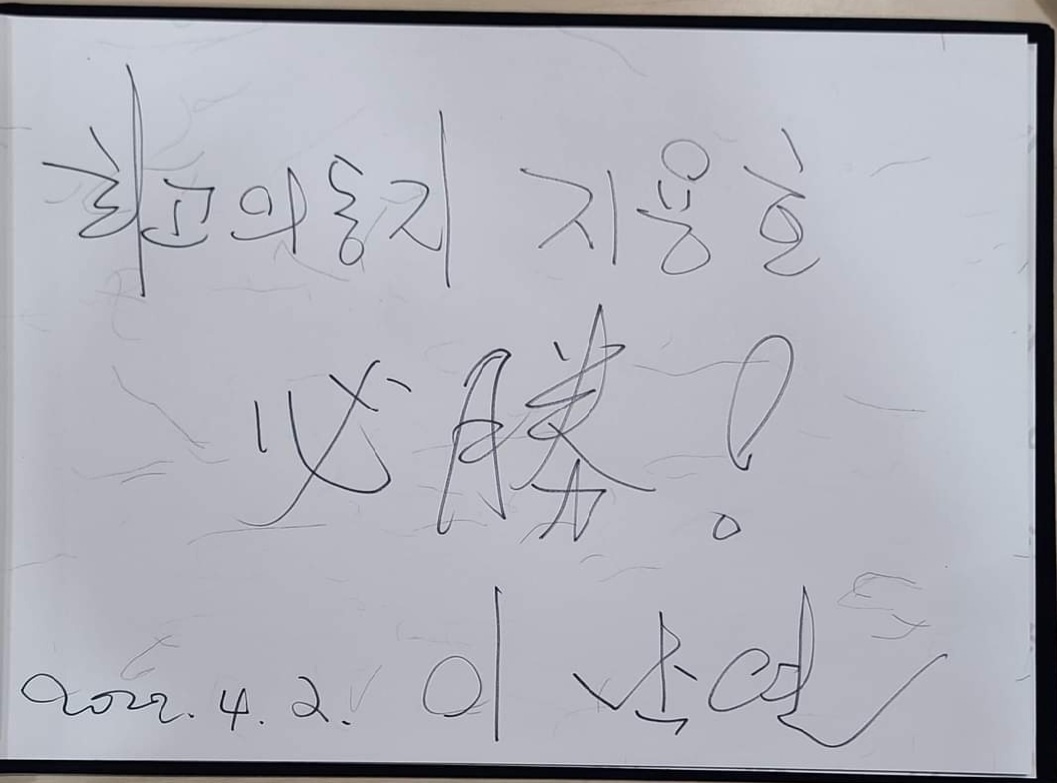 최고의 동지 지용호
必勝!
2022. 4. 2. 이낙연